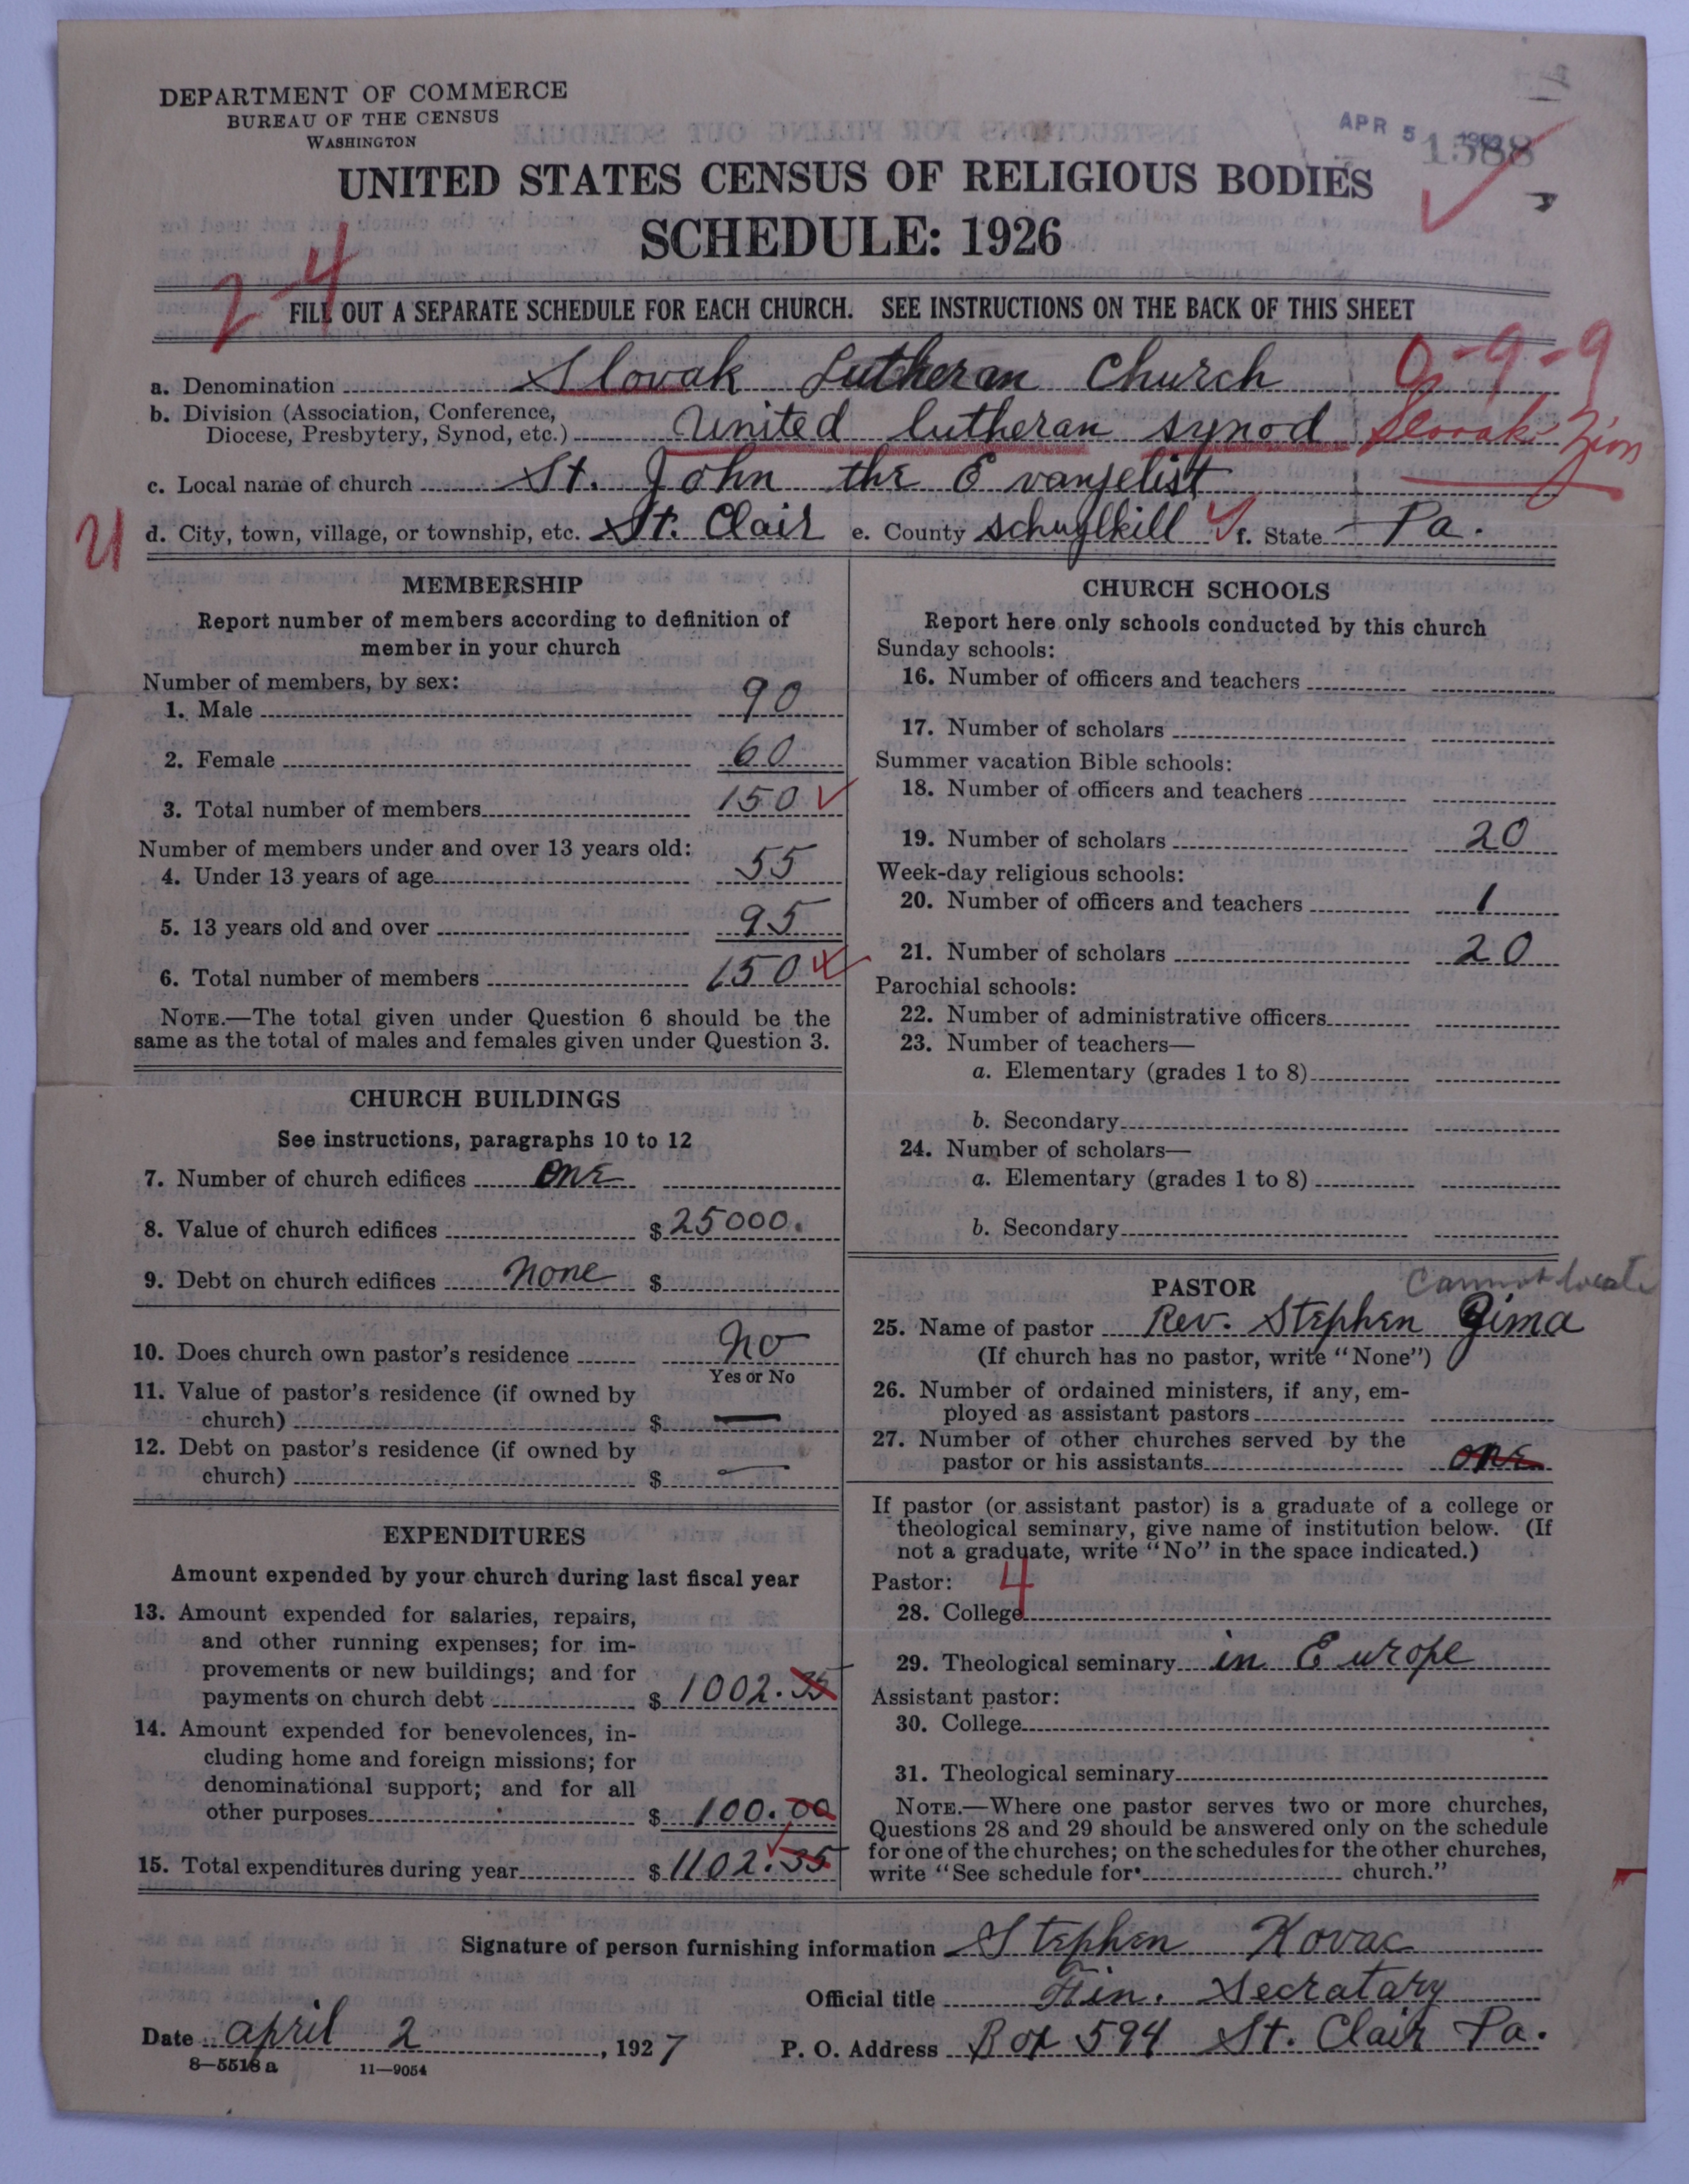 DEPARTMENT OF COMMERCE
BUREAU OF THE CENSUS
WASHINGTON
APR 5
1388
UNITED STATES CENSUS OF RELIGIOUS BODIES
SCHEDULE: 1926
24
FILL OUT A SEPARATE SCHEDULE FOR EACH CHURCH. SEE INSTRUCTIONS ON THE BACK OF THIS SHEET
0-9-9
a. Denomination Slovak Lutheran Church
b. Division (Association, Conference,
Diocese, Presbytery, Synod, etc.) United lutheran synod Slovak Zion
c. Local name of church St. John the Evanjelist
d. City, town, village, or township, etc. St. Clair e. County schuylkill f. State Pa.
MEMBERSHIP
Report number of members according to definition of
member in your church
Number of members, by sex:
1. Male 90
2. Female 60
3. Total number of members 150
Number of members under and over 13 years old:
4. Under 13 years of age 55
5. 13 years old and over 95
6. Total number of members 150
NOTE.—The total given under Question 6 should be the
same as the total of males and females given under Question 3.
CHURCH BUILDINGS
See instructions, paragraphs 10 to 12
7. Number of church edifices one
8. Value of church edifices $ 25000.
9. Debt on church edifices none $
10. Does church own pastor's residence no
Yes or No
11. Value of pastor's residence (if owned by
church) $ —
12. Debt on pastor's residence (if owned by
church) $ —
EXPENDITURES
Amount expended by your church during last fiscal year
13. Amount expended for salaries, repairs,
and other running expenses; for im-
provements or new buildings; and for
payments on church debt $ 1002.35
14. Amount expended for benevolences, in-
cluding home and foreign missions; for
denominational support; and for all
other purposes $ 100.00
15. Total expenditures during year $ 1102.35
CHURCH SCHOOLS
Report here only schools conducted by this church
Sunday schools:
16. Number of officers and teachers
17. Number of scholars
Summer vacation Bible schools:
18. Number of officers and teachers
19. Number of scholars 20
Week-day religious schools:
20. Number of officers and teachers 1
21. Number of scholars 20
Parochial schools:
22. Number of administrative officers
23. Number of teachers—
a. Elementary (grades 1 to 8)
b. Secondary
24. Number of scholars—
a. Elementary (grades 1 to 8)
b. Secondary
PASTOR
Cannot locate
25. Name of pastor Rev. Stephen Zima
(If church has no pastor, write "None")
26. Number of ordained ministers, if any, em-
ployed as assistant pastors
27. Number of other churches served by the
pastor or his assistants one
If pastor (or assistant pastor) is a graduate of a college or
theological seminary, give name of institution below. (If
not a graduate, write "No" in the space indicated.)
Pastor: 4
28. College
29. Theological seminary in Europe
Assistant pastor:
30. College
31. Theological seminary
NOTE.—Where one pastor serves two or more churches,
Questions 28 and 29 should be answered only on the schedule
for one of the churches; on the schedules for the other churches,
write "See schedule for church."
Signature of person furnishing information Stephen Kovac
Official title Fin. Secratary
Date april 2, 1927 P. O. Address Box 594 St. Clair Pa.
8—5518 a 11—9054